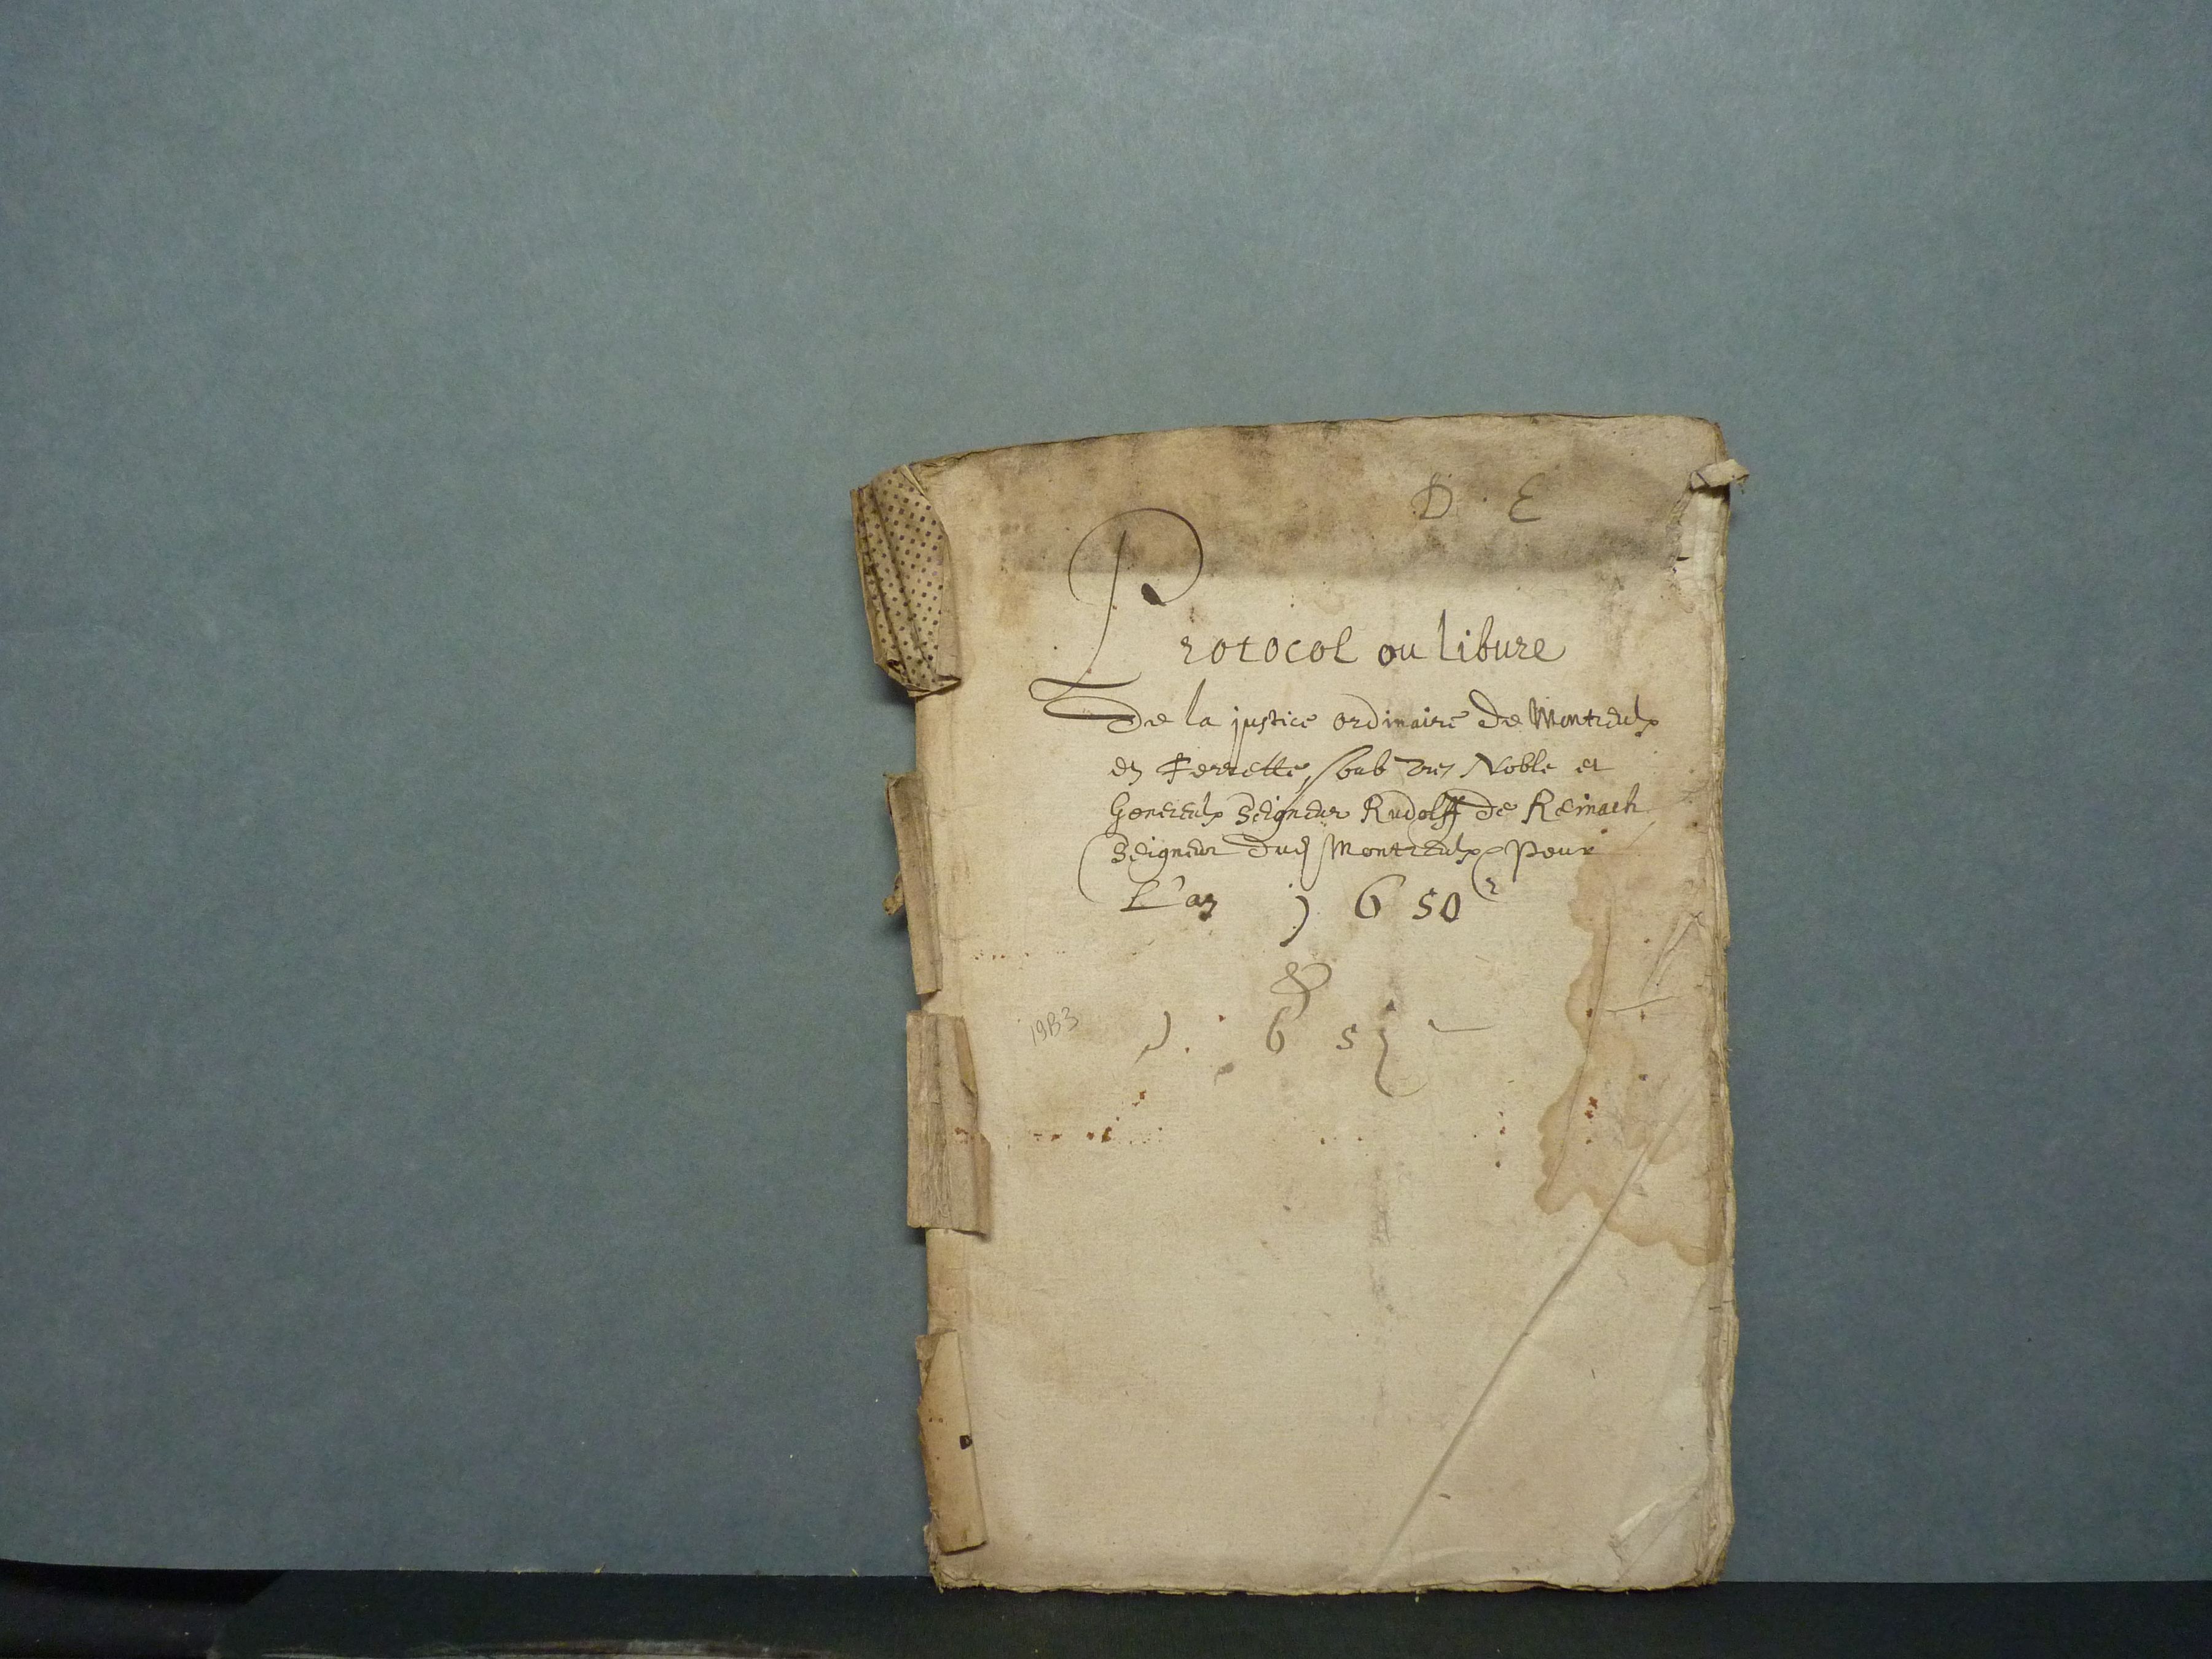 D. E
Protocol ou libure
De la justice ordinaire de Montreulx
en Ferrette, soub Noble et
Genereulx Seigneur Rudolff de Reinach
Seigneur dud Montreulx Pour
L'an 1650
&
1651
19B3